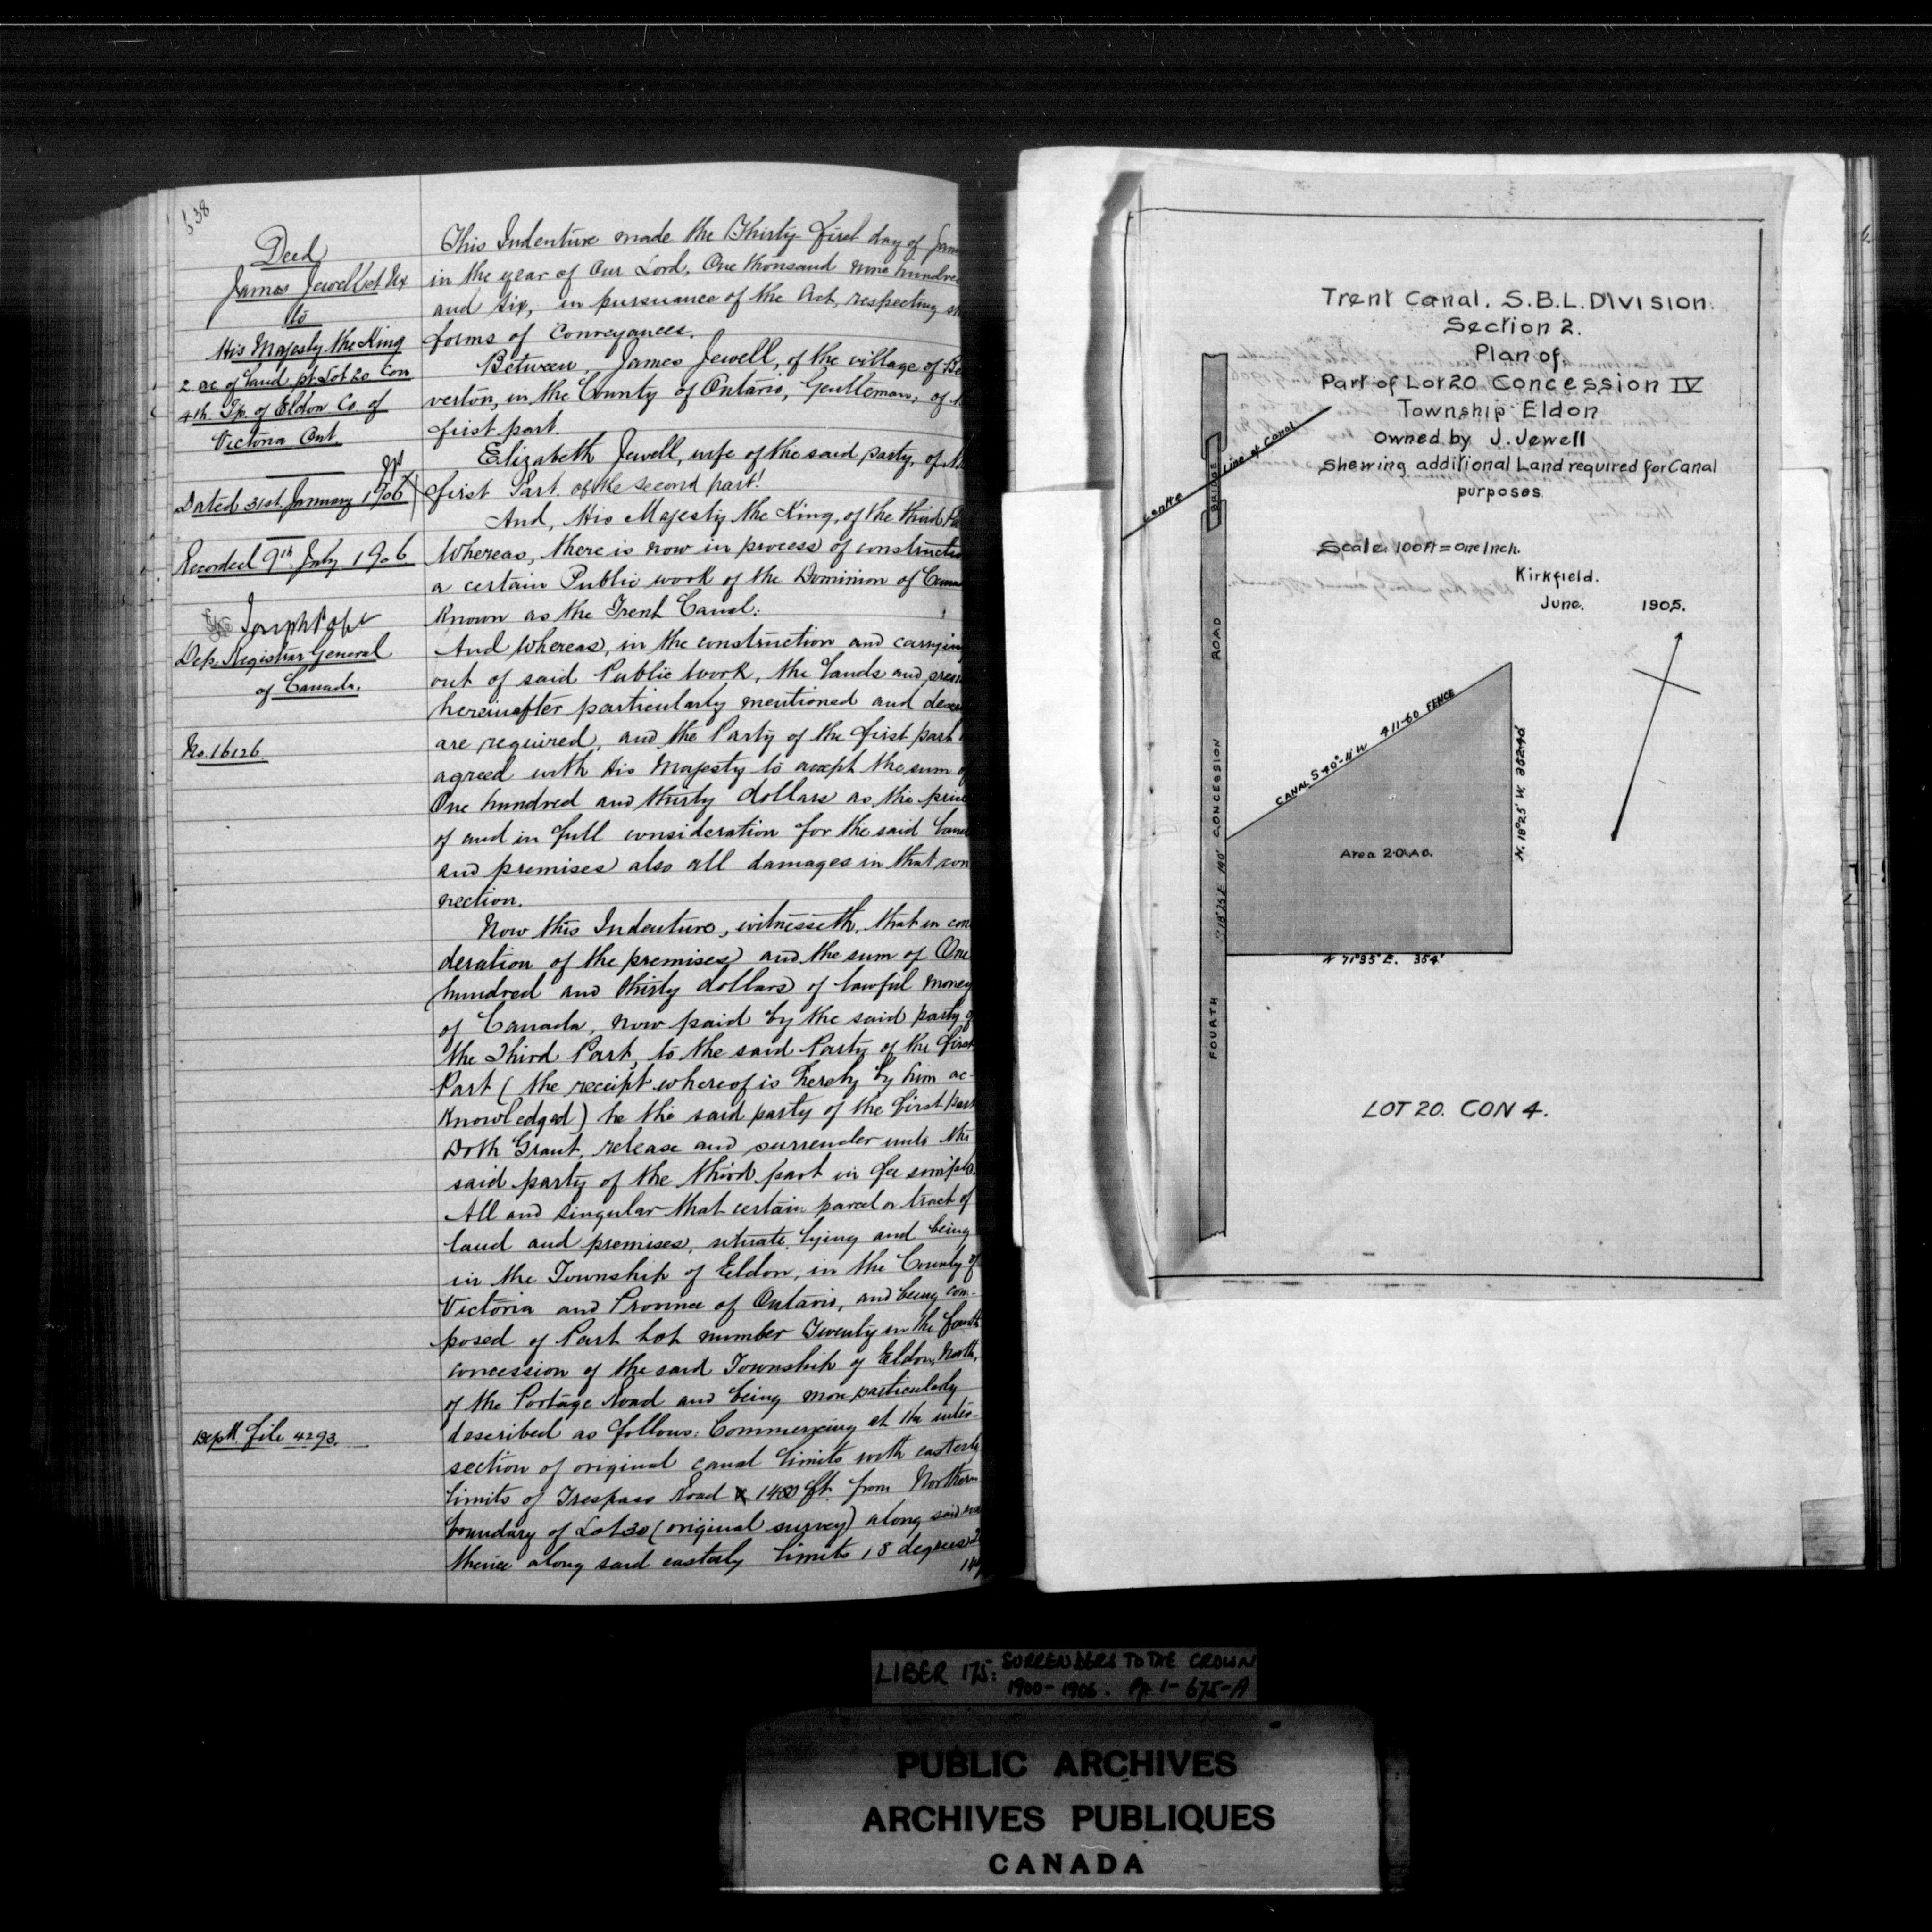 538
Deed
James Jewell et Ux
to
His Majesty the King
2. ac. of Land pt Lot 20 Con
4th. Tp. of Eldon Co. of
Victoria Ont.
Dated 31st. January 1906
Recorded 9th July 1906
Joseph Pope
Dep. Registrar General
of Canada.
No. 16126.
Dept. file 4293.
This Indenture made the Thirty first day of
in the year of Our Lord, One thousand nine hundred
and six, in pursuance of the Act, respecting
forms of Conveyances.
Between, James Jewell, of the village of
verton, in the County of Ontario, Gentleman, of
first part.
Elizabeth Jewell, wife of the said party, of
first Part. of the second part!
And, His Majesty the King, of the third
Whereas, there is now in process of
a certain Public work of the Dominion of
known as the Trent Canal:
And Whereas, in the construction and carrying
out of said Public Work, the Lands and
hereinafter particularly mentioned and
are required, and the Party of the first part
agreed with His Majesty to accept the sum of
One hundred and thirty dollars as the price
of and in full consideration for the said Land
and premises also all damages in that con
nection.
Now this Indenture, witnesseth, that in con
deration of the premises and the sum of One
hundred and thirty dollars of lawful money
of Canada, now paid by the said party of
the Third Part, to the said Party of the first
Part (the receipt whereof is hereby by him ac-
knowledged) he the said party of the first part
Doth Grant, release and surrender unto the
said party of the third part in fee simple.
All and Singular that certain parcel or tract of
land and premises, situate, lying and being
in the Township of Eldon, in the County of
Victoria and Province of Ontario, and being com-
posed of Part Lot number Twenty in the fourth
concession of the said Township of Eldon, North,
of the Portage Road and being more particularly
described as follows: Commencing at the inter-
section of original canal limits with easterly
limits of Trespass Road 1480 ft. from Northern
boundary of Lot 20 (original survey) along said
thence along said easterly limits 18 degrees
Trent Canal. S.B.L. DIVISION.
Section 2.
Plan of
Part of Lot 20 Concession IV
Township Eldon
owned by J. Jewell
shewing additional Land required for Canal
purposes
Scale 100 Ft = One Inch.
Kirkfield.
June. 1905.
Centre Line of Canal
BRIDGE
FOURTH CONCESSION ROAD
CANAL S 40°-11' W 411.60 FENCE
N. 18°25' W. 352.40'
S 18°25' E 140'
Area 2.01 Ac.
N 71°35' E. 354'
LOT 20. CON 4.
LIBER 175: SURRENDERS TO THE CROWN
1900-1906. Pp. 1-675-A
PUBLIC ARCHIVES
ARCHIVES PUBLIQUES
CANADA